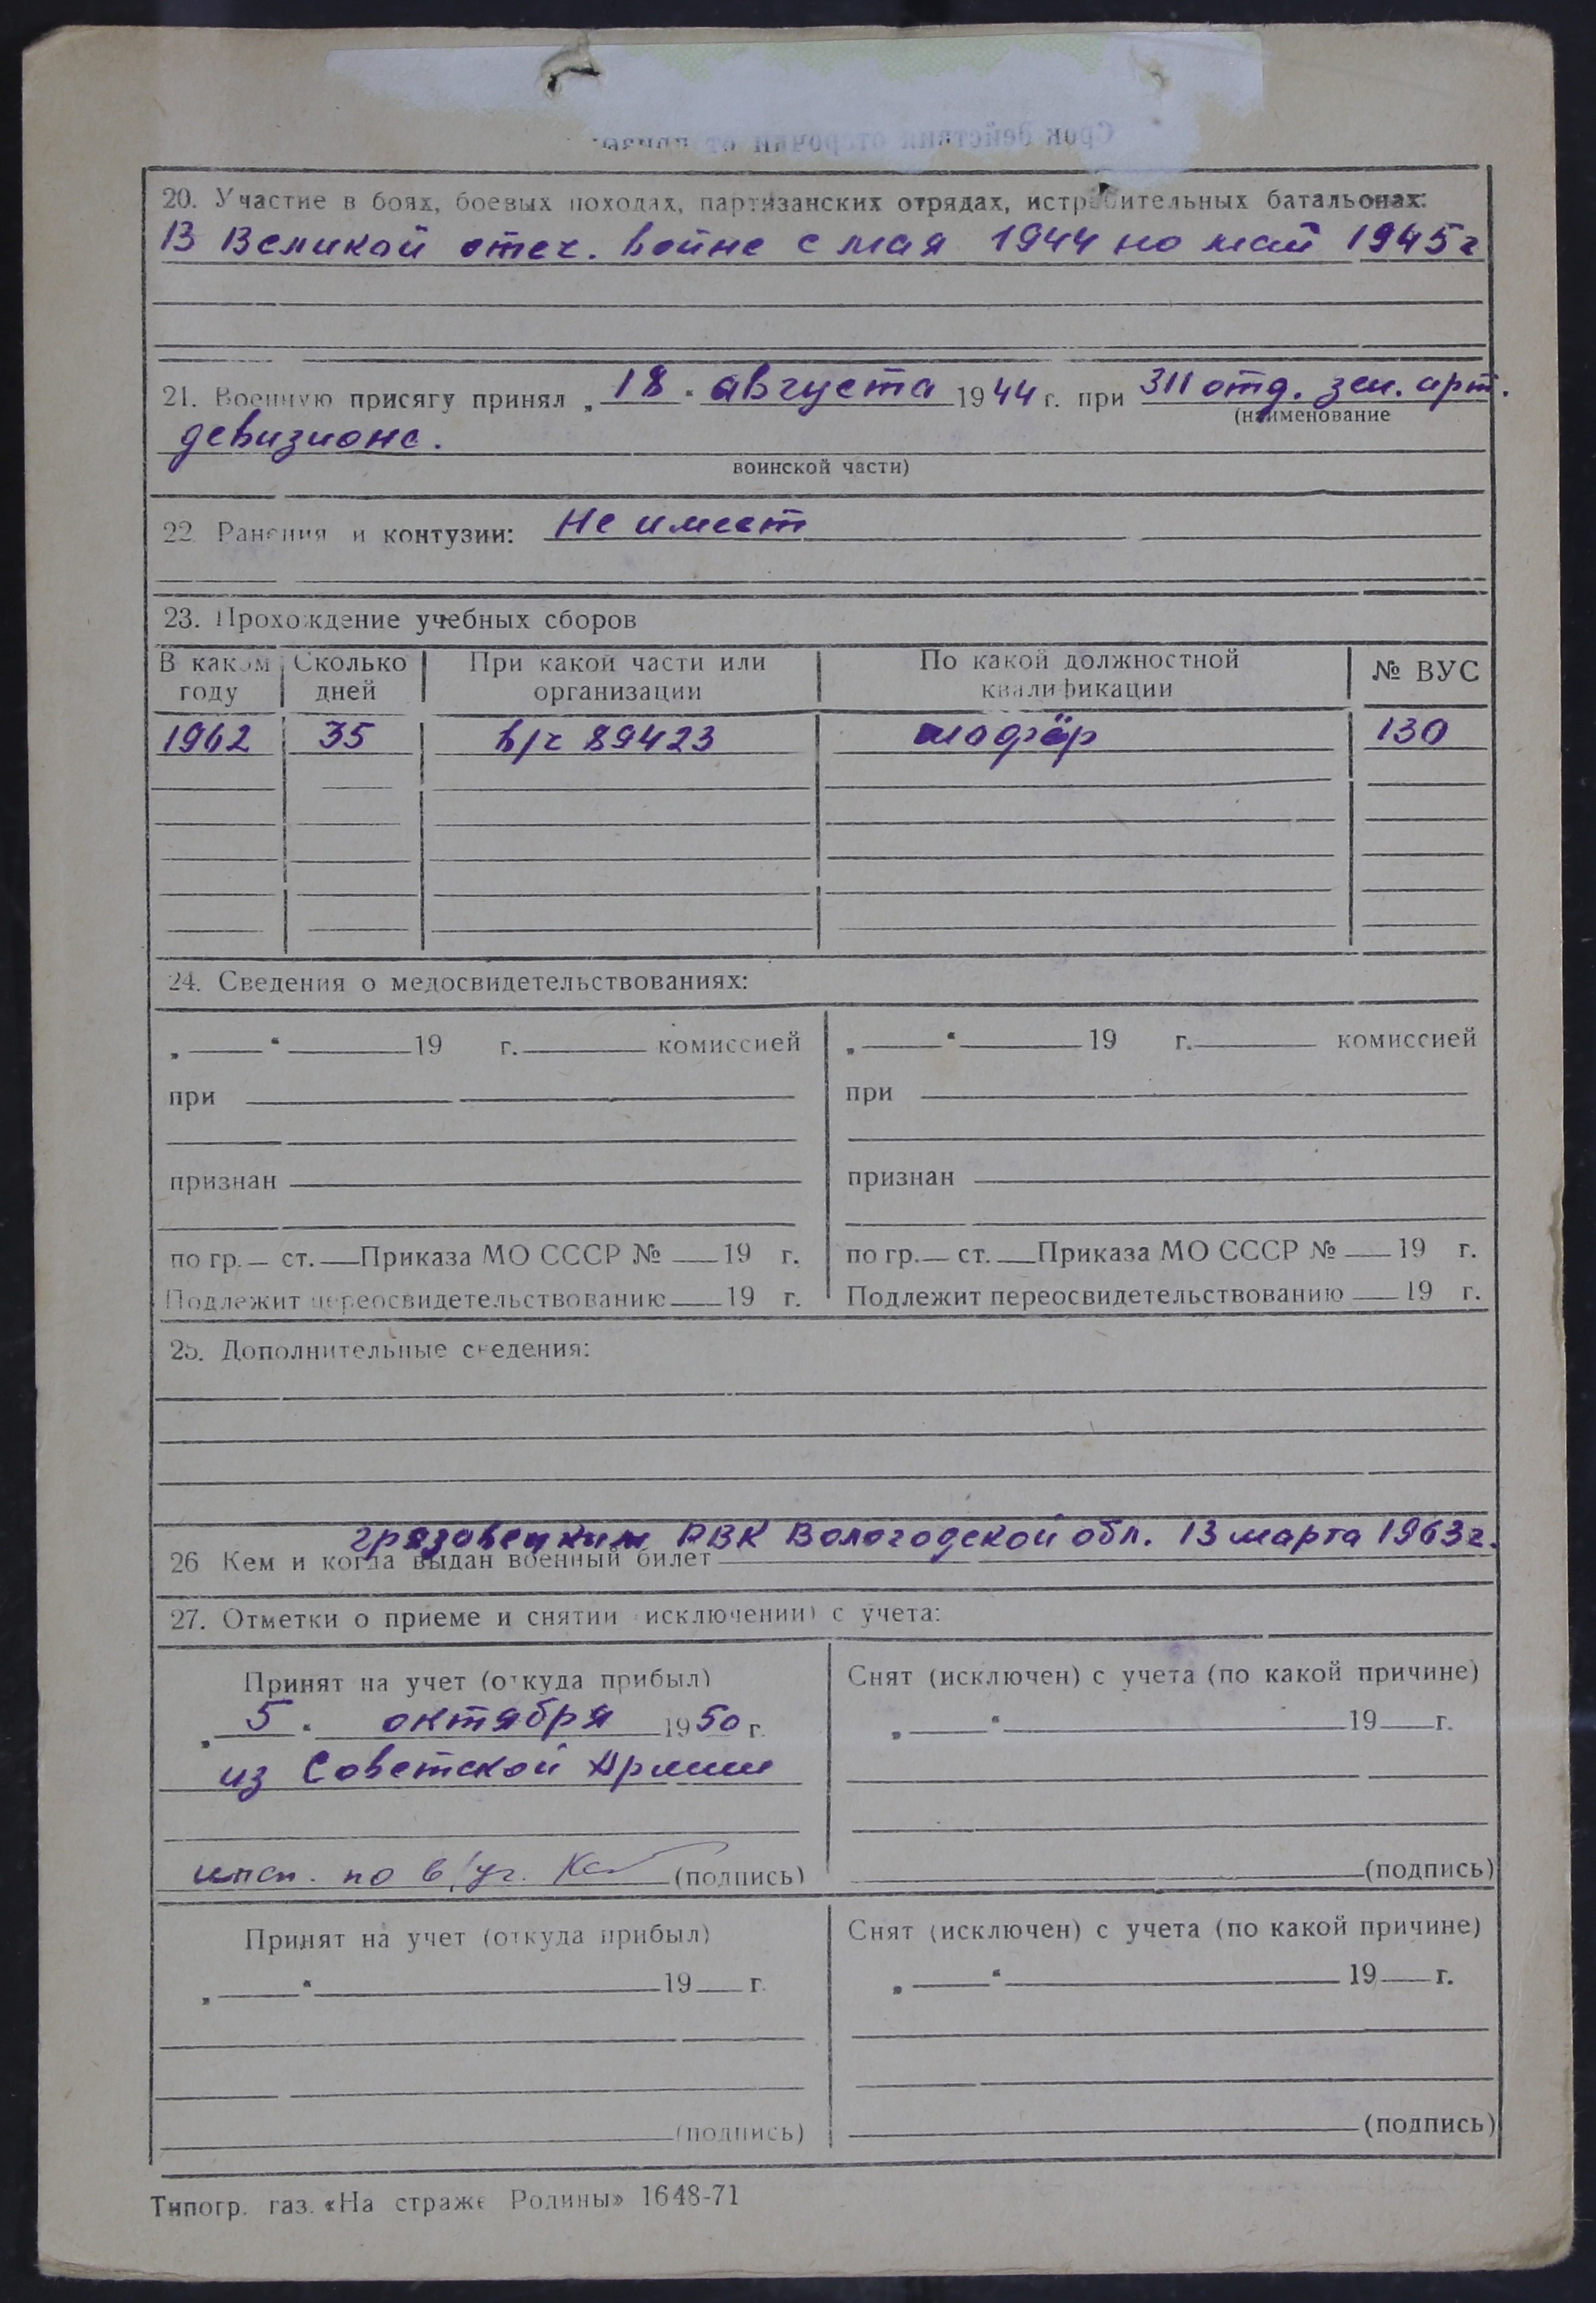 Срок действия отсрочки от
20. Участие в боях, боевых походах, партизанских отрядах, истребительных батальонах:
В Великой отеч. войне с мая 1944 по май 1945г
21. Военную присягу принял „18“ августа 1944 г. при 311 отд. зен. арт.
(наименование
девизионе.
воинской части)
22. Ранения и контузии: Не имеет
23. Прохождение учебных сборов
В каком году Сколько дней При какой части или организации По какой должностной квалификации № ВУС
1962 35 в/ч 89423 шофёр 130
24. Сведения о медосвидетельствованиях:
„ “ 19 г. комиссией „ “ 19 г. комиссией
при при
признан признан
по гр. ст. Приказа МО СССР № 19 г. по гр. ст. Приказа МО СССР № 19 г.
Подлежит переосвидетельствованию 19 г. Подлежит переосвидетельствованию 19 г.
25. Дополнительные сведения:
грязовецким РВК Вологодской обл. 13 марта 1963г.
26 Кем и когда выдан военный билет
27. Отметки о приеме и снятии (исключении) с учета:
Принят на учет (откуда прибыл) Снят (исключен) с учета (по какой причине)
„5“ октября 1950 г. „ “ 19 г.
из Советской Армии
инсп. по в/уч. (подпись) (подпись)
Принят на учет (откуда прибыл) Снят (исключен) с учета (по какой причине)
„ “ 19 г. „ “ 19 г.
(подпись) (подпись)
Типогр. газ. «На страже Родины» 1648-71